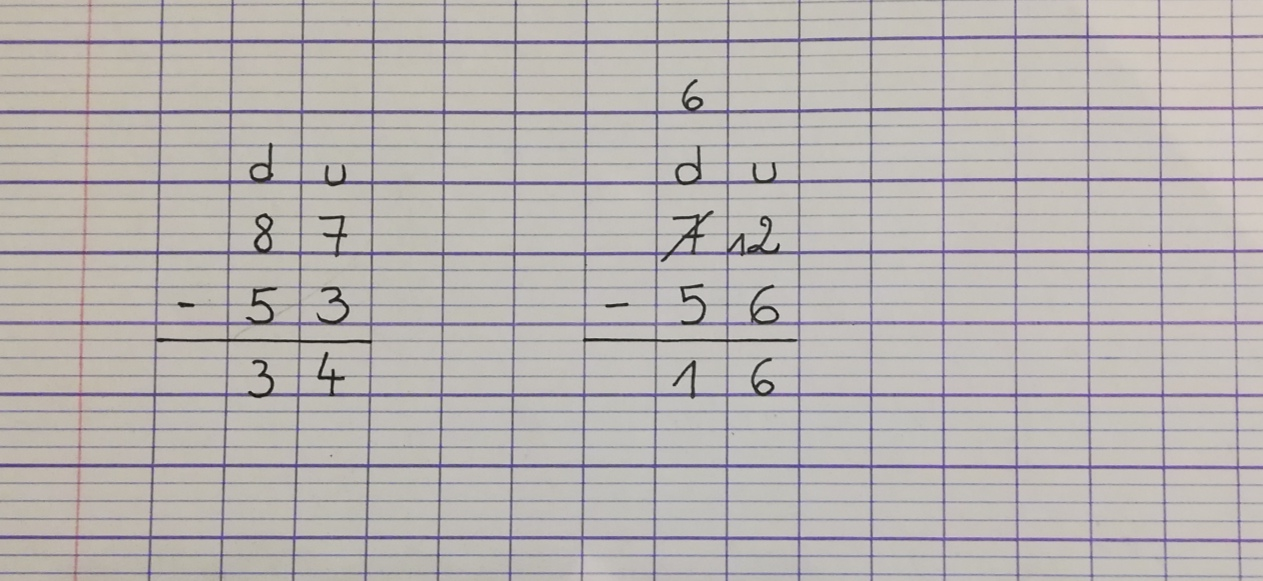 6
d u
87
- 53
34
d u
7 12
- 56
16